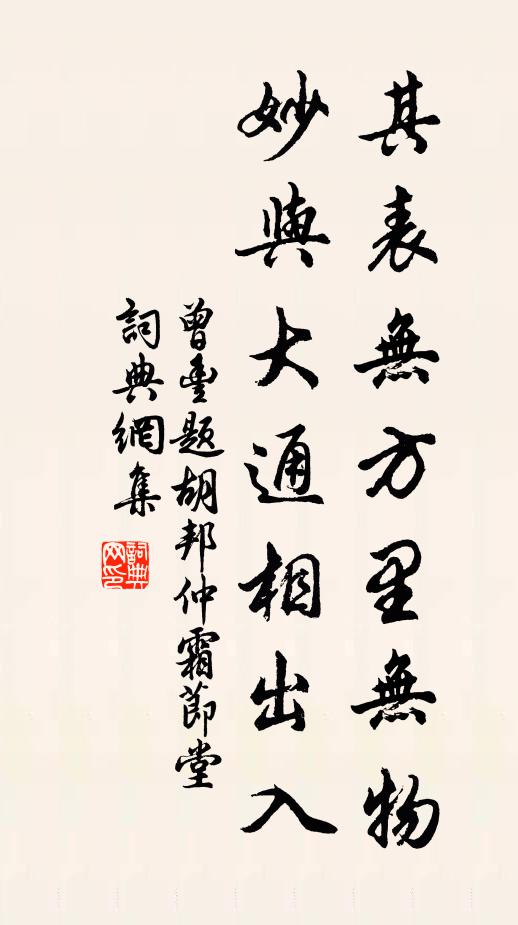 其表無方里無物
妙與大通相出入
曾豐題胡邦仲霜節堂
詞典網集
詞典網印